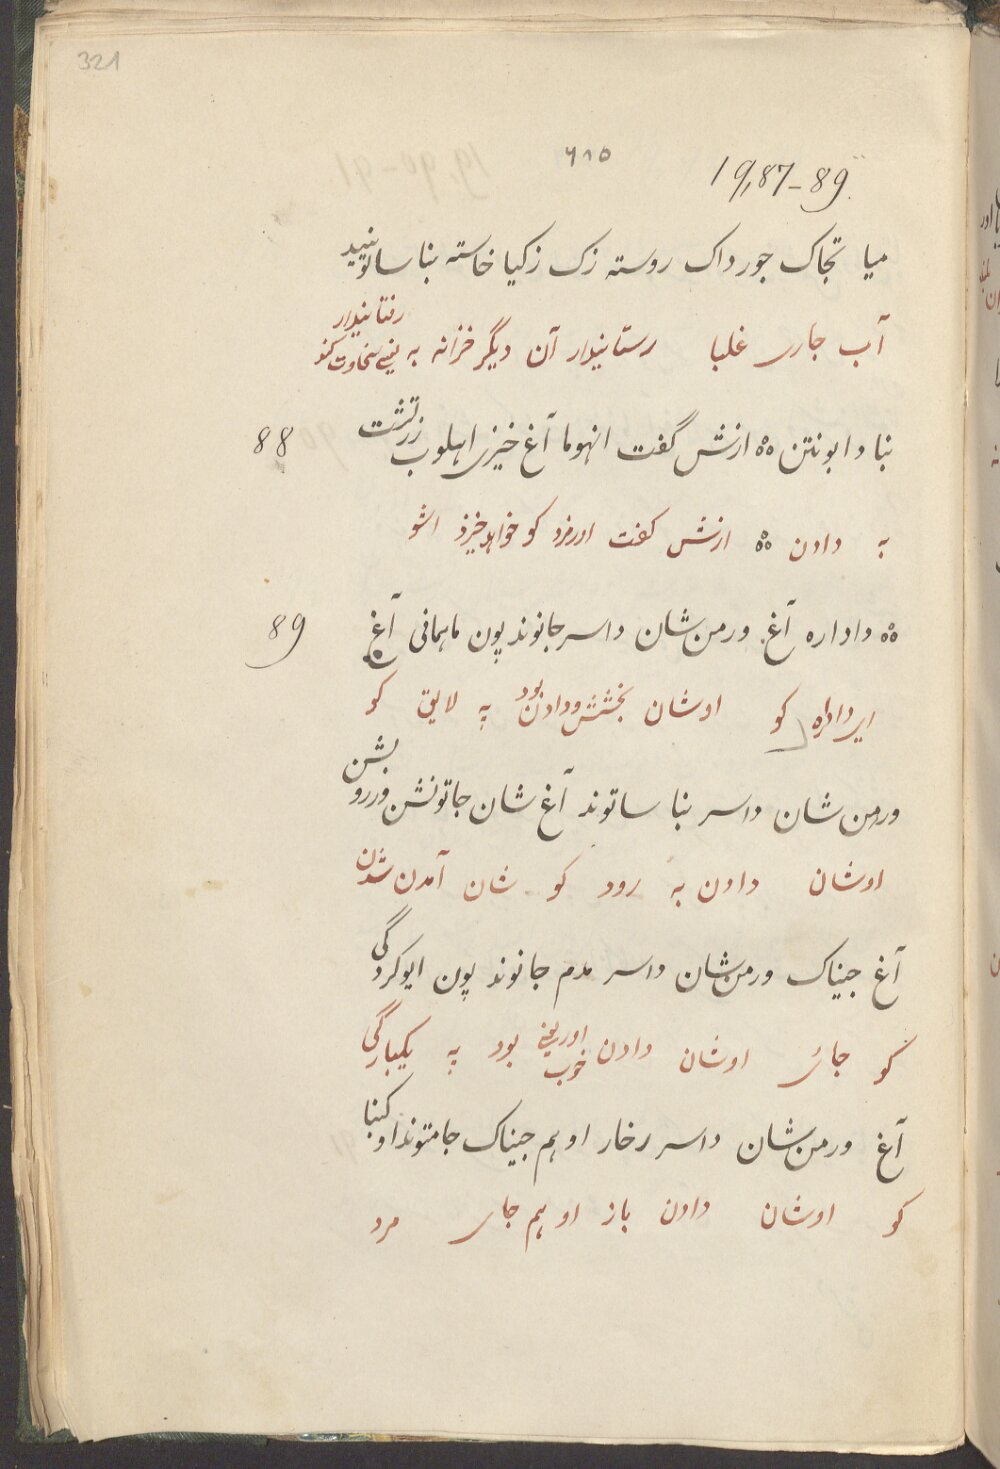 321
۶۱۵
19,87-89.
میا تجاک جورداک روسته زک زکیا خاسته بنا ساتونیید
آب جاری غلبا رستانیدار آن دیگر خزانه به
رفتانیدار
بنا دابونتن ۰۰ ازش گفت انهوما آغ خیزی اهلوب زرتشت 88
به دادن ۰۰ ازش گفت اورمزد کو خواهد خیزد اشو
۰۰ داداره آغ ورمن شان داسر جانوند پون ماهمانی آغ 89
ای داداره کو اوشان بخشش و دادن بود په لایق کو
ورمن شان داسر بنا ساتوند آغ شان جاتونشن وررو بشن
اوشان دادن به رود کو شان آمدن شدن
آغ جیناک ورمن شان داسر مدم جانوند پون ایوکردگی
کو جای اوشان دادن خوب بود په یکبارگی
آغ ورمن شان داسر رخار او هم جیناک جامتوند او کبنا
کو اوشان دادن باز او هم جای مرد